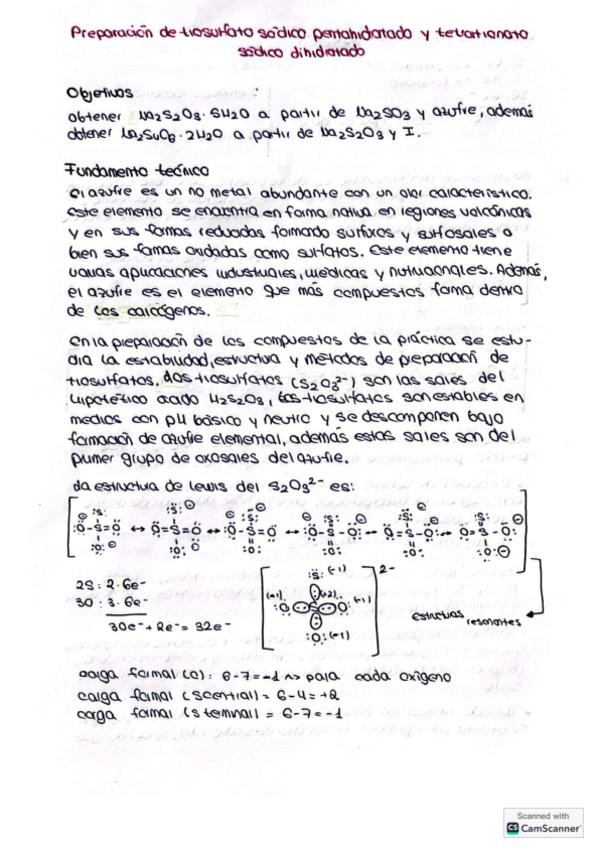 Preparación de tiosulfato sódico pentahidratado y tetrationato
sódico dihidratado
Objetivos :
obtener Na2S2O3·5H2O a partir de Na2SO3 y azufre, además
obtener Na2S4O6·2H2O a partir de Na2S2O3 y I.
Fundamento teórico
El azufre es un no metal abundante con un olor característico.
Este elemento se encuentra en forma nativa en regiones volcánicas
y en sus formas reducidas formando sulfuros y sulfosales o
bien sus formas oxidadas como sulfatos. Este elemento tiene
varias aplicaciones industriales, médicas y nutricionales. Además,
el azufre es el elemento que más compuestos forma dentro
de los calcógenos.
En la preparación de los compuestos de la práctica se estu-
dia la estabilidad, estructura y métodos de preparación de
tiosulfatos. Los tiosulfatos (S2O3²⁻) son las sales del
hipotético ácido H2S2O3, los tiosulfatos son estables en
medios con pH básico y neutro y se descomponen bajo
formación de azufre elemental, además estas sales son del
primer grupo de oxosales del azufre.
La estructura de Lewis del S2O3²⁻ es:
2S : 2·6e⁻
3O : 3·6e⁻
30e⁻ + 2e⁻ = 32e⁻
estructuras resonantes
carga formal (O) : 6-7 = -1 ~> para cada oxígeno
carga formal (S central) = 6-4 = +2
carga formal (S terminal) = 6-7 = -1
Scanned with
CS CamScanner